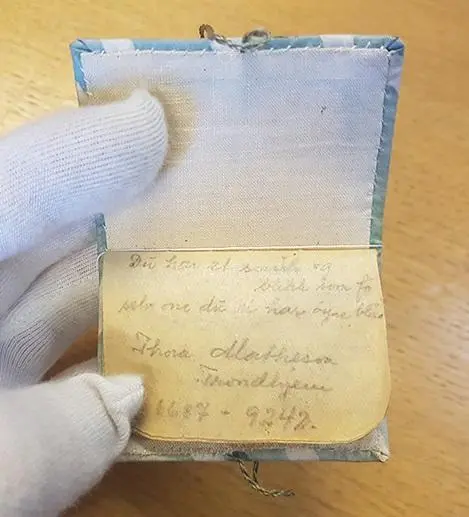 Du har et smil og
blikk som få
selv om du ei har øyne blå
Thora Matheson
Trondhjem
6687 - 9242.